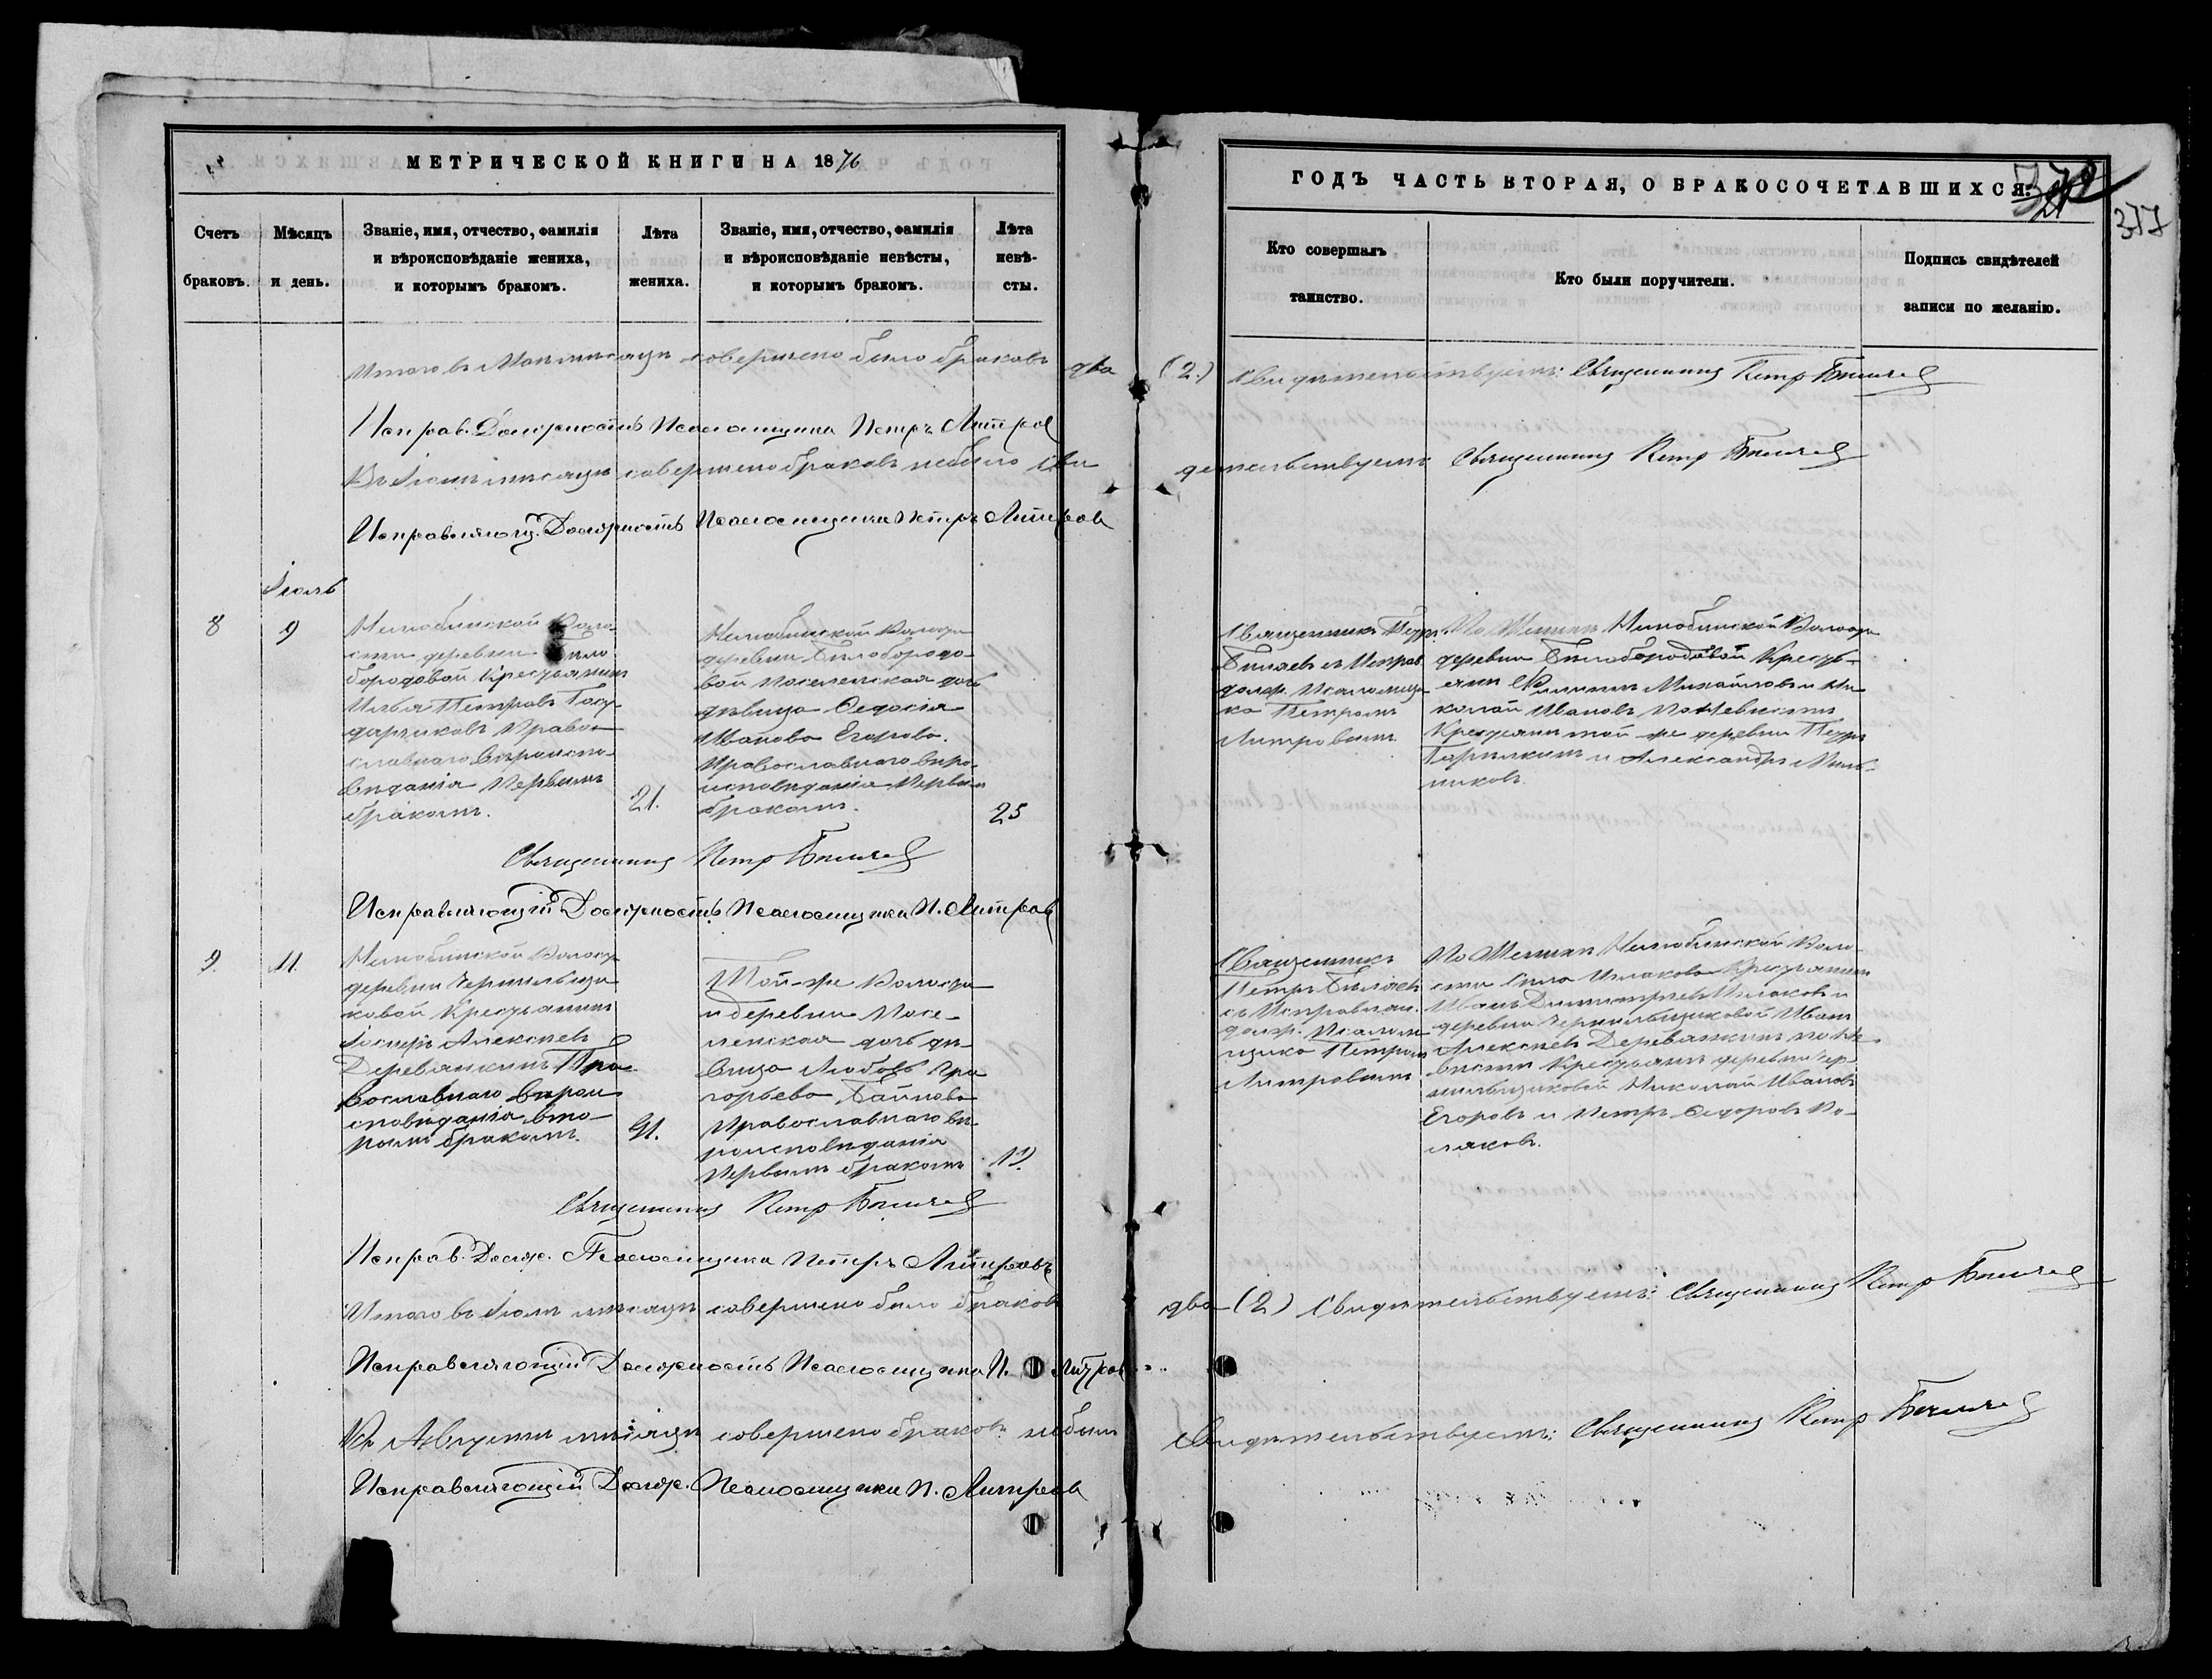 МЕТРИЧЕСКОЙ КНИГИ НА 1876
ГОДЪ ЧАСТЬ ВТОРАЯ, О БРАКОСОЧЕТАВШИХСЯ.
377
Счетъ браковъ.
Мѣсяцъ и день.
Званіе, имя, отчество, фамилія
и вѣроисповѣданіе жениха,
и которымъ бракомъ.
Лѣта
жениха.
Званіе, имя, отчество, фамилія
и вѣроисповѣданіе невѣсты,
и которымъ бракомъ.
Лѣта
невѣ-
сты.
Кто совершалъ
таинство.
Кто были поручители.
Подпись свидѣтелей
записи по желанію.
Итого въ Маѣ мѣсяцѣ совершено было браковъ два (2.) свидѣтельствуемъ: Священникъ Петръ Бѣляев
Исправ. Должность Псаломщика Петръ Литров
Въ Іюнѣ мѣсяцѣ совершено браковъ небыло сви
дѣтельствуемъ Священникъ Петръ Бѣляев
Исправляющ. Должность Псаломщика Петръ Литров
Іюль
8
9
деревни Бѣло
бородовой Крестьянинъ
Илья Петровъ Госу
дарчиковъ Право
славнаго Вѣроиспо
вѣданія Первымъ
бракомъ.
21.
деревни Бѣлобородо
вой Поселенская дочь
дѣвица Федосія
Иванова Егорова.
Православнаго вѣро
исповѣданія Первым
бракомъ.
25
Священникъ Петръ
Бѣляевъ съ Исправ.
долж. Псаломщи
ка Петромъ
Литровымъ
По Женихѣ
деревни Бѣлобородовой Кресть
яни Филиппъ Михайловъ и Ни
колай Ивановъ По Невѣстѣ
Крестьяни той же деревни Петръ
и Александръ Мель
никовъ.
Священникъ Петръ Бѣляев
Исправляющій Должность Псаломщика П. Литров
9.
11.
деревни Чернильщи
ковой Крестьянинъ
Іосифъ Алексѣевъ
Деревянкинъ Пра
вославнаго вѣрои
сповѣданія вто
рымъ бракомъ.
Той-же Волости
и деревни Посе
ленская дочь дѣ
вица Любовь Гри
горьева
Православнаго вѣ
роисповѣданія
Первымъ бракомъ
19.
Священникъ
Петръ Бѣляевъ
съ Исправляю.
долж. Псалом
щика Петромъ
Литровымъ
По Женихѣ
сти Села Крестьянинъ
Иванъ Димитріевъ и
деревни Чернильщиковой Иванъ
Алексѣевъ Деревянкинъ по Не
вѣстѣ Крестьяни деревни Чер
нильщиковой Николай Ивановъ
Егоровъ и Петръ Федоровъ По
ляковъ.
Священникъ Петръ Бѣляев
Исправ. Долж. Псаломщика Петръ Литровъ
Итого въ Іюлѣ мѣсяцѣ совершено было браковъ
два (2) свидѣтельствуемъ: Священникъ Петръ Бѣляев
Исправляющій Должность Псаломщика П. Литров
Въ Августѣ мѣсяцѣ совершено браковъ небыло
свидѣтельствуемъ: Священникъ Петръ Бѣляев
Исправляющій Долж. Псаломщика П. Литров